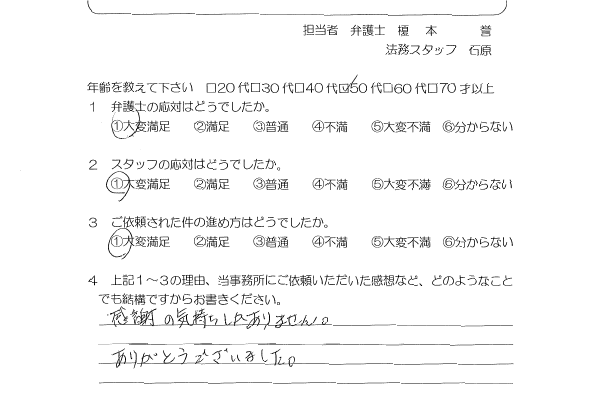 担当者 弁護士 榎 本 誉
法務スタッフ 石原
年齢を教えて下さい □20代□30代□40代☑50代□60代□70才以上
1 弁護士の応対はどうでしたか。
①大変満足 ②満足 ③普通 ④不満 ⑤大変不満 ⑥分からない
2 スタッフの応対はどうでしたか。
①大変満足 ②満足 ③普通 ④不満 ⑤大変不満 ⑥分からない
3 ご依頼された件の進め方はどうでしたか。
①大変満足 ②満足 ③普通 ④不満 ⑤大変不満 ⑥分からない
4 上記1~3の理由、当事務所にご依頼いただいた感想など、どのようなこと
でも結構ですからお書きください。
感謝の気持ちしかありません。
ありがとうございました。